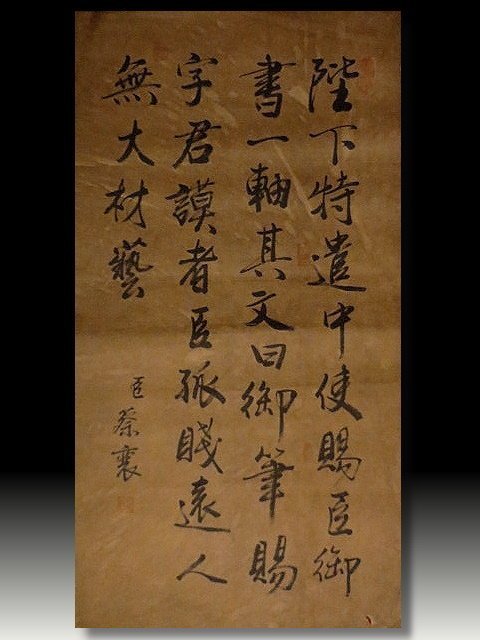 陛下特遣中使賜臣御
書一軸其文曰御筆賜
字君謨者臣孤賤遠人
無大材藝
臣蔡襄